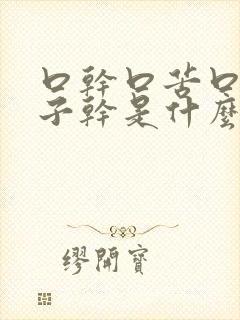 口幹口苦口
子幹是什麼
繆開寶